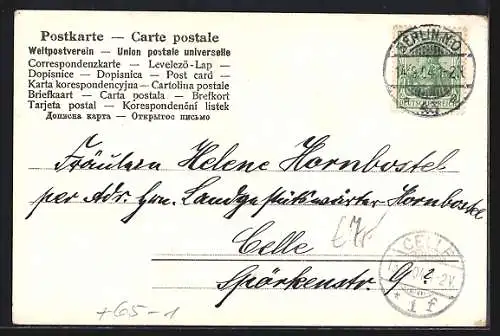 Postkarte — Carte postale
Weltpostverein — Union postale universelle
Correspondenzkarte — Levelező-Lap —
Dopisnice — Dopisnica — Post card —
Karta korespondencyjna — Cartolina postale
Briefkaart — Carta postala — Brefkort
Tarjeta postal — Korespondenční listek
Дописна карта — Открытое письмо
BERLIN N.O.
DEUTSCHES REICH
Fräulein Helene Hornbostel
per Adr. Hrn. Landgestütswärter Hornbostel
Celle
CELLE
Spörkenstr. 9
* 1 f
+65-1